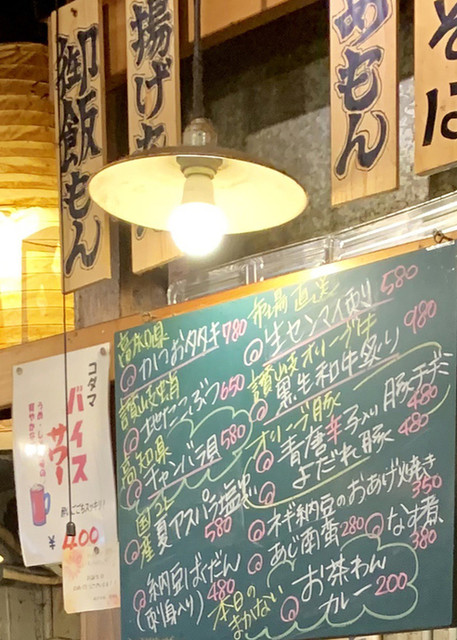 御飯もん
揚げ
あもん
そば
コダマ
バイス
サワー
400
高知県
かつおタタキ 780
讃岐
地だこぶつ 650
高知県
チャンバラ貝 580
国産
夏アスパラ塩
580
納豆ばくだん
(刺身入り) 480
市場直送
生センマイ刺り 580
讃岐オリーブ牛
黒毛和牛炙り 980
オリーブ豚
青唐辛子入り豚 480
よだれ豚 480
ネギ納豆のおあげ焼き
350
あじ南蛮 280
なす煮
380
本日の
まかない
お茶わん
カレー 200